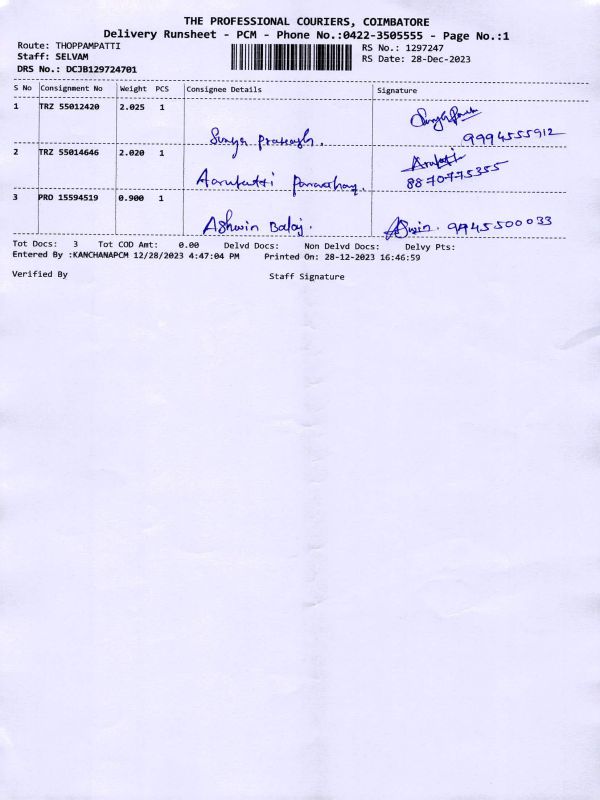 THE PROFESSIONAL COURIERS, COIMBATORE
Delivery Runsheet - PCM - Phone No.:0422-3505555 - Page No.:1
Route: THOPPAMPATTI
Staff: SELVAM
DRS No.: DCJB129724701
RS No.: 1297247
RS Date: 28-Dec-2023
S No Consignment No Weight PCS Consignee Details Signature
1 TRZ 55012420 2.025 1
Surya Prakash. 9994555912
2 TRZ 55014646 2.020 1
8870775355
3 PRO 15594519 0.900 1
Ashwin Balaj. Aswin. 9945500033
Tot Docs: 3 Tot COD Amt: 0.00 Delvd Docs: Non Delvd Docs: Delvy Pts:
Entered By :KANCHANAPCM 12/28/2023 4:47:04 PM Printed On: 28-12-2023 16:46:59
Verified By Staff Signature